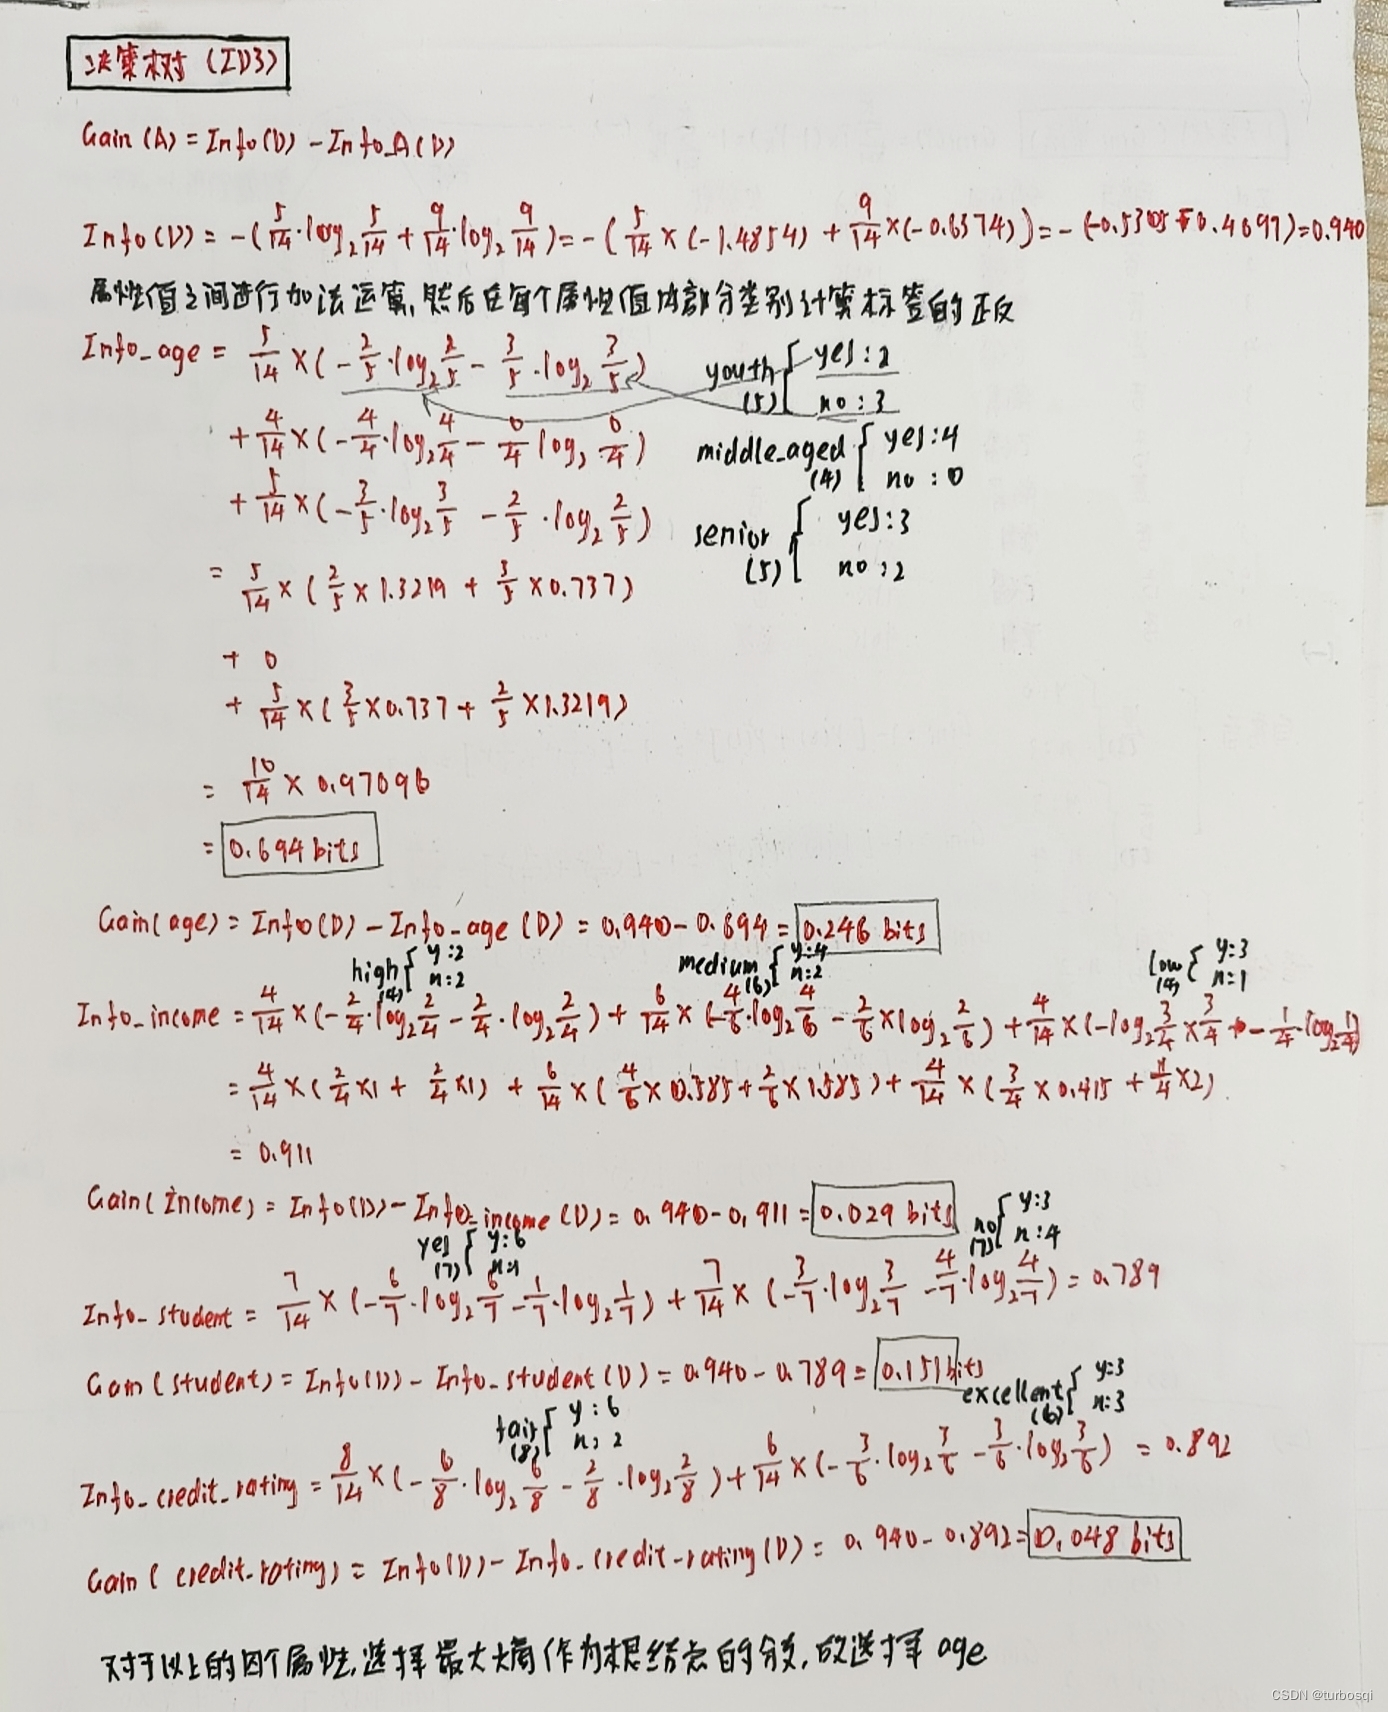 决策树 (ID3)
Gain (A) = Info(D) - Info_A(D)
Info(D) = -(5/14·log₂ 5/14 + 9/14·log₂ 9/14) = -(5/14 × (-1.4854) + 9/14 × (-0.6374)) = -(-0.5305 + 0.4097) = 0.940
属性值之间进行加法运算,然后在每个属性值内部分类别计算标签的正反
Info_age = 5/14 × (-2/5·log₂ 2/5 - 3/5·log₂ 3/5) youth (5) { yes:2 no:3
+ 4/14 × (-4/4·log₂ 4/4 - 0/4 log₂ 0/4) middle_aged (4) { yes:4 no:0
+ 5/14 × (-3/5·log₂ 3/5 - 2/5·log₂ 2/5) senior (5) { yes:3 no:2
= 5/14 × (2/5 × 1.3219 + 3/5 × 0.737)
+ 0
+ 5/14 × (3/5 × 0.737 + 2/5 × 1.3219)
= 10/14 × 0.97096
= 0.694 bits
Gain(age) = Info(D) - Info_age (D) = 0.940 - 0.694 = 0.246 bits
high (4) { y:2 n:2 medium (6) { y:4 n:2 low (4) { y:3 n:1
Info_income = 4/14 × (-2/4·log₂ 2/4 - 2/4·log₂ 2/4) + 6/14 × (-4/6·log₂ 4/6 - 2/6 × log₂ 2/6) + 4/14 × (-log₂ 3/4 × 3/4 - 1/4·log₂ 1/4)
= 4/14 × (2/4 × 1 + 2/4 × 1) + 6/14 × (4/6 × 0.585 + 2/6 × 1.585) + 4/14 × (3/4 × 0.415 + 1/4 × 2)
= 0.911
Gain(Income) = Info(D) - Info_income(D) = 0.940 - 0.911 = 0.029 bits
yes (7) { y:6 n:1 no (7) { y:3 n:4
Info_student = 7/14 × (-6/7·log₂ 6/7 - 1/7·log₂ 1/7) + 7/14 × (-3/7·log₂ 3/7 - 4/7·log₂ 4/7) = 0.789
Gain(student) = Info(D) - Info_student(D) = 0.940 - 0.789 = 0.151 bits
fair (8) { y:6 n:2 excellent (6) { y:3 n:3
Info_credit_rating = 8/14 × (-6/8·log₂ 6/8 - 2/8·log₂ 2/8) + 6/14 × (-3/6·log₂ 3/6 - 3/6·log₂ 3/6) = 0.892
Gain( credit_rating) = Info(D) - Info_credit_rating(D) = 0.940 - 0.892 = 0.048 bits
对于以上的四个属性,选择最大熵作为根结点的分支,故选择 age
CSDN @turbosqi